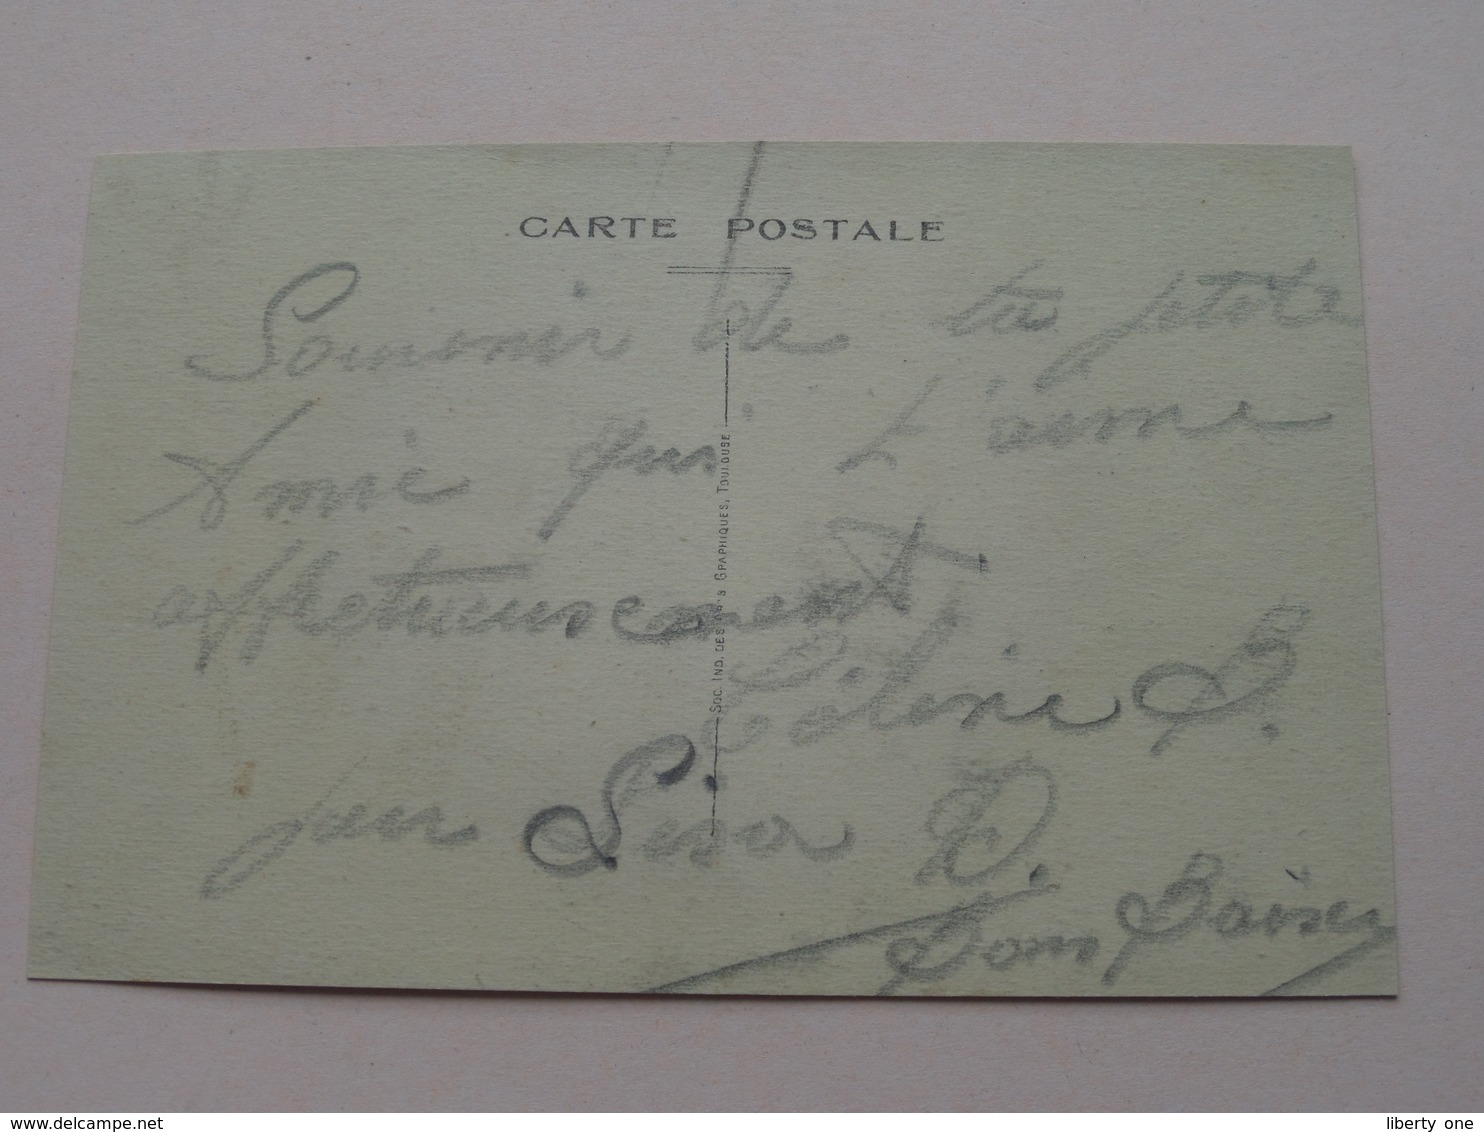 CARTE POSTALE
Souvenir de ta petite
Amie qui t'aime
affectueusement
Céline B.
pour Lisa D.
Bons Baisers
SOC. IND. DES GRAPHIQUES, TOULOUSE
www.delcampe.net
liberty one